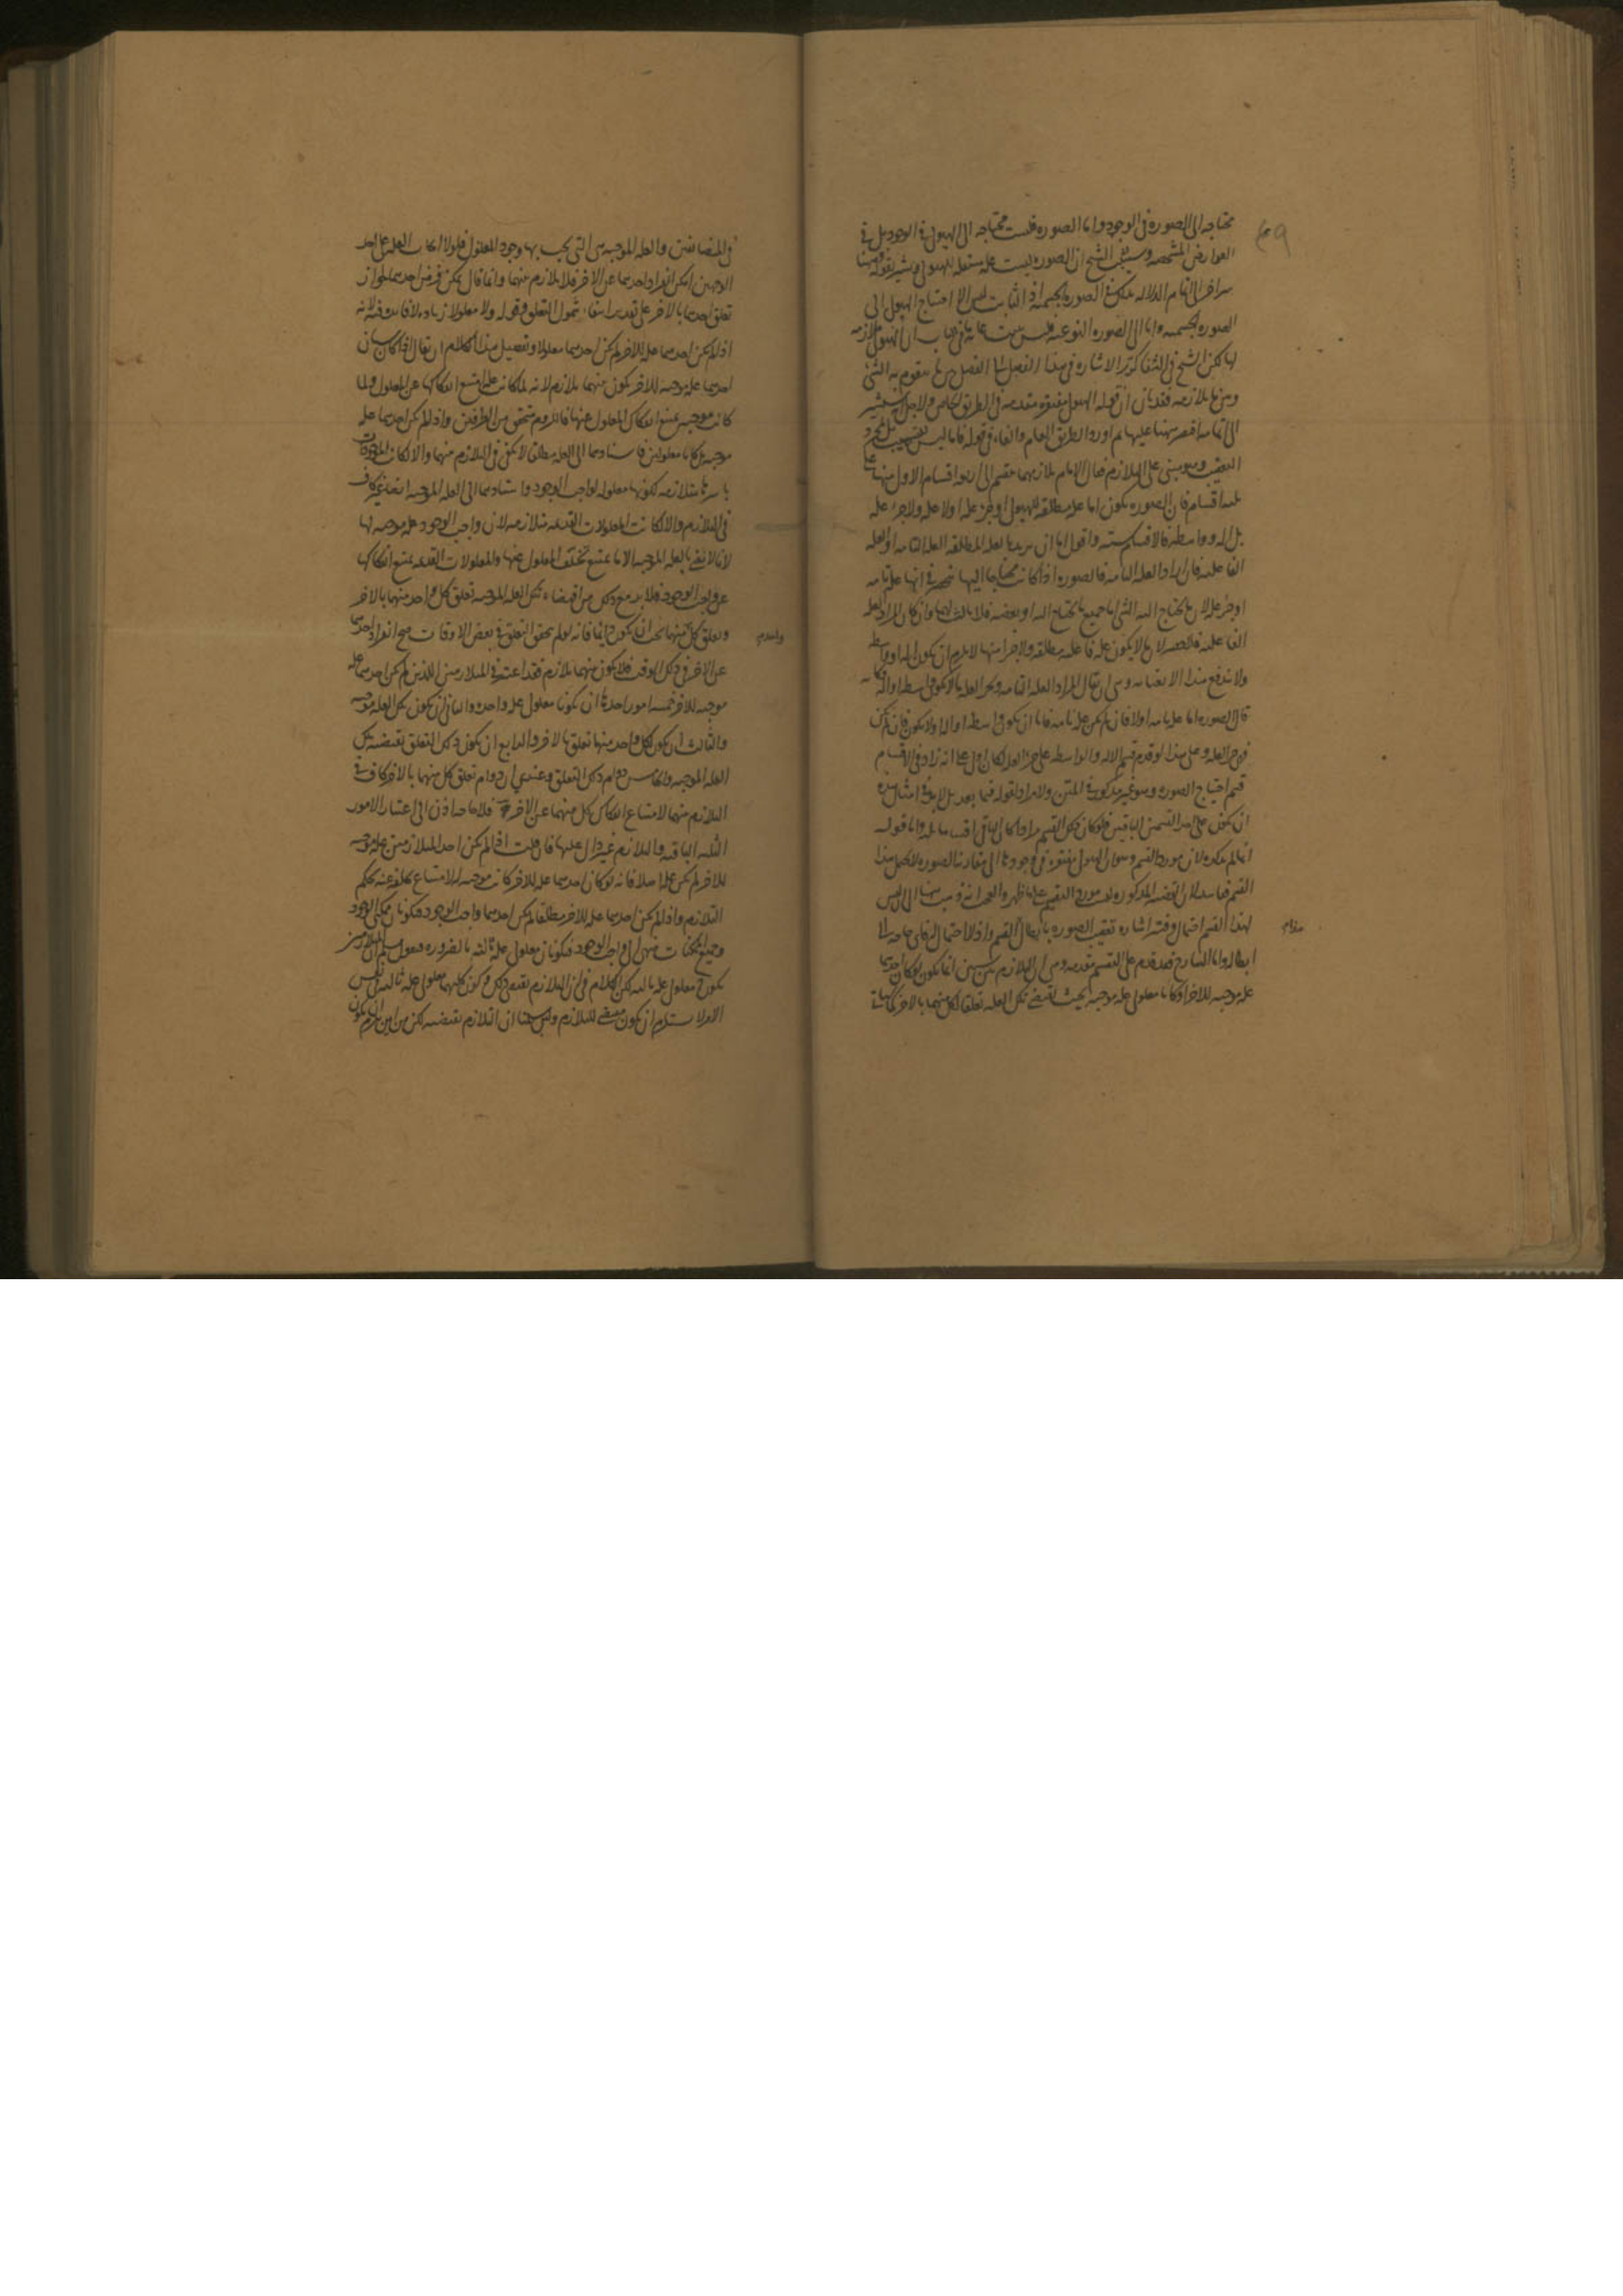 محتاجه الى الصوره فى الوجود واما الصوره فليست محتاجه الى الهيولى فى الوجود بل فى
العوارض المشخصه وسيبين الشيخ ان الصوره ليست عله مستقله للهيولى ويشير بقوله وههنا
سر اخر الى تمام الدلاله وذلك فى الصوره الجسميه اذ الثابت ليس الا احتياج الهيولى الى
الصوره الجسميه واما الى الصوره النوعيه فليس يثبت ان الهيولى ملازمه
لها لكن الشيخ فى الشفا الاشاره فى هذا الفصل الفصل بين ما يتقوم به الشئ
وبين ما يلازمه فقد بان ان قوله الهيولى مفتقره مقدمه فى الطريق الخاص ولاجل
الى اقتصر ههنا عليها ثم اورد الطريق العام والفاء فى قوله فاما ليس
التعقيب وهو مبنى على التلازم فقال الامام تلازمهما ينقسم الى اربعه اقسام الاول منها
ثلثه اقسام فان الصوره يكون اما عله مطلقه للهيولى او جزء عله او لا عله ولا جزء عله
بل اله او واسطه فالاقسام سته واقول اما ان يريد بالعله المطلقه العله التامه او العله
الفاعليه فان اراد العله التامه فالصوره اذا كانت محتاجا اليها انحصر فى انها عله تامه
او جزء عله لان ما يحتاج اليه الشئ اما جميع ما يحتاج اليه او بعضه فلا ثالث لهما وان كان المراد العله
الفاعليه فالحصر لان ما لا يكون عله فاعليه مطلقه ولا جزء منها لا يلزم ان يكون اله او واسطه
ولا يندفع هذا الا بعنايه وهى ان يقال المراد العله التامه وجزء العله ما لا يكون واسطه او اله
قال الصوره اما عله تامه اولا فان لم يكن عله تامه فاما ان يكون واسطه او اله اولا يكون فان لم يكن
فهى جزء العله وعلى هذا لو قدم قسم الاله والواسطه على جزء العله لكان اولى على انه زاد فى الاقسام
قسم احتياج الصوره وهو غير مذكور فى المتن ولا مراد لقوله فيما بعد بل لا بد فى امثال هذه
ان يكون على احد القسمين الباقيين فلو كان ذلك القسم مرادا كان الباقى اقساما ثلثه واما قوله
انما لم يذكره لان مورد القسم وهو ان الهيولى مفتقره فى وجودها الى مقارنه الصوره لا يحتمل هذا
القسم ففاسد لان القضيه المذكوره ليست مورد التقسيم على ما ظهر والعجب انه ذهب ههنا الى ان ليس
لهذا القسم احتمال وفسر اشاره تعقيب الصوره بابطال القسم واذ لا احتمال له فاى حاجه الى
ابطاله واما الشارح فقد قدم على التقسيم مقدمه وهى ان التلازم بين شيئين انما يكون لو كان احدهما
عله موجبه للاخر او كانا معلولى عله موجبه بحيث يقتضى تلك العله تعلقا لكل منهما بالاخر كما
هذا م
فى المتضائفين والعله الموجبه هى التى يجب بها وجود المعلول فلولا العله على احد
الوجهين امكن انفراد احدهما عن الاخر فلا تلازم بينهما وانما قال يمكن فرض احدهما لجواز
تعلق احدهما بالاخر على تقدير انتفاء شمول التعلق وقوله ولا معلولا زياده لا فائده فيه لانه
اذا لم يكن احدهما عله للاخر لم يكن احدهما معلولا وتفصيل هذا الكلام ان يقال اذا كان شيئان
احدهما عله موجبه للاخر يكون بينهما تلازم لانه لما كانت عله امتنع انفكاكها عن المعلول ولما
كانت موجبه يمتنع انفكاك المعلول عنها فاللزوم متحقق من الطرفين واذا لم يكن احدهما عله
موجبه بل كانا معلولين فاستنادهما الى العله مطلقا لا يكفى فى التلازم بينهما والا لكانت الموجودات
باسرها متلازمه لكونها معلوله لواجب الوجود واستنادهما الى العله الموجبه ايضا غير كاف
فى التلازم والا لكانت المعلولات القديمه متلازمه لان واجب الوجود عله موجبه لها
لانا لا نعنى بالعله الموجبه الا ما يمتنع تخلف المعلول عنها والمعلولات القديمه يمتنع انفكاكها
عن واجب الوجود فلا بد مع ذلك من اقتضاء تلك العله الموجبه تعلق كل واحد منهما بالاخر
وتعلق كل منهما يجب ان يكون دائما فانه لو لم يتحقق التعلق فى بعض الاوقات صح انفراد احدهما
عن الاخر فى ذلك الوقت فلا يكون بينهما تلازم فقد اعتبر فى المتلازمين اللذين لم يكن احدهما عله
موجبه للاخر خمسه امور احدها ان يكونا معلولى عله واحده والثانى ان يكون تلك العله موجبه
والثالث ان يكون لكل واحد منهما تعلق بالاخر والرابع ان يكون ذلك التعلق بقتضيه تلك
العله الموجبه والخامس دوام ذلك التعلق وعندى ان دوام تعلق كل منهما بالاخر كاف فى
التلازم بينهما لامتناع انفكاك كل منهما عن الاخر فلا حاجه اذن الى اعتبار الامور
الثلثه الباقيه والتلازم غير دال عليها فان قلت اذا لم يكن احد المتلازمين عله موجبه
للاخر لم يكن عله اصلا فانه لو كان احدهما عله للاخر كانت موجبه له لامتناع تخلفه عنه بحكم
التلازم واذا لم يكن احدهما عله للاخر مطلقا لم يكن احدهما واجب الوجود فيكونان ممكنى الوجود
وجميع الممكنات ينتهى الى واجب الوجود فيكونان معلولى عله ثالثه بالضروره فنقول نسلم ان المتلازمين
يكونان معلولى عله ثالثه لكن الكلام فى ان التلازم يقتضى ذلك وكونهما معلولى عله ثالثه ليس
الا ولا يستلزم ان يكون مقتضى للتلازم وليس ههنا ان التلازم يقتضيه لكن من اين يلزم ان يكون
واحد م